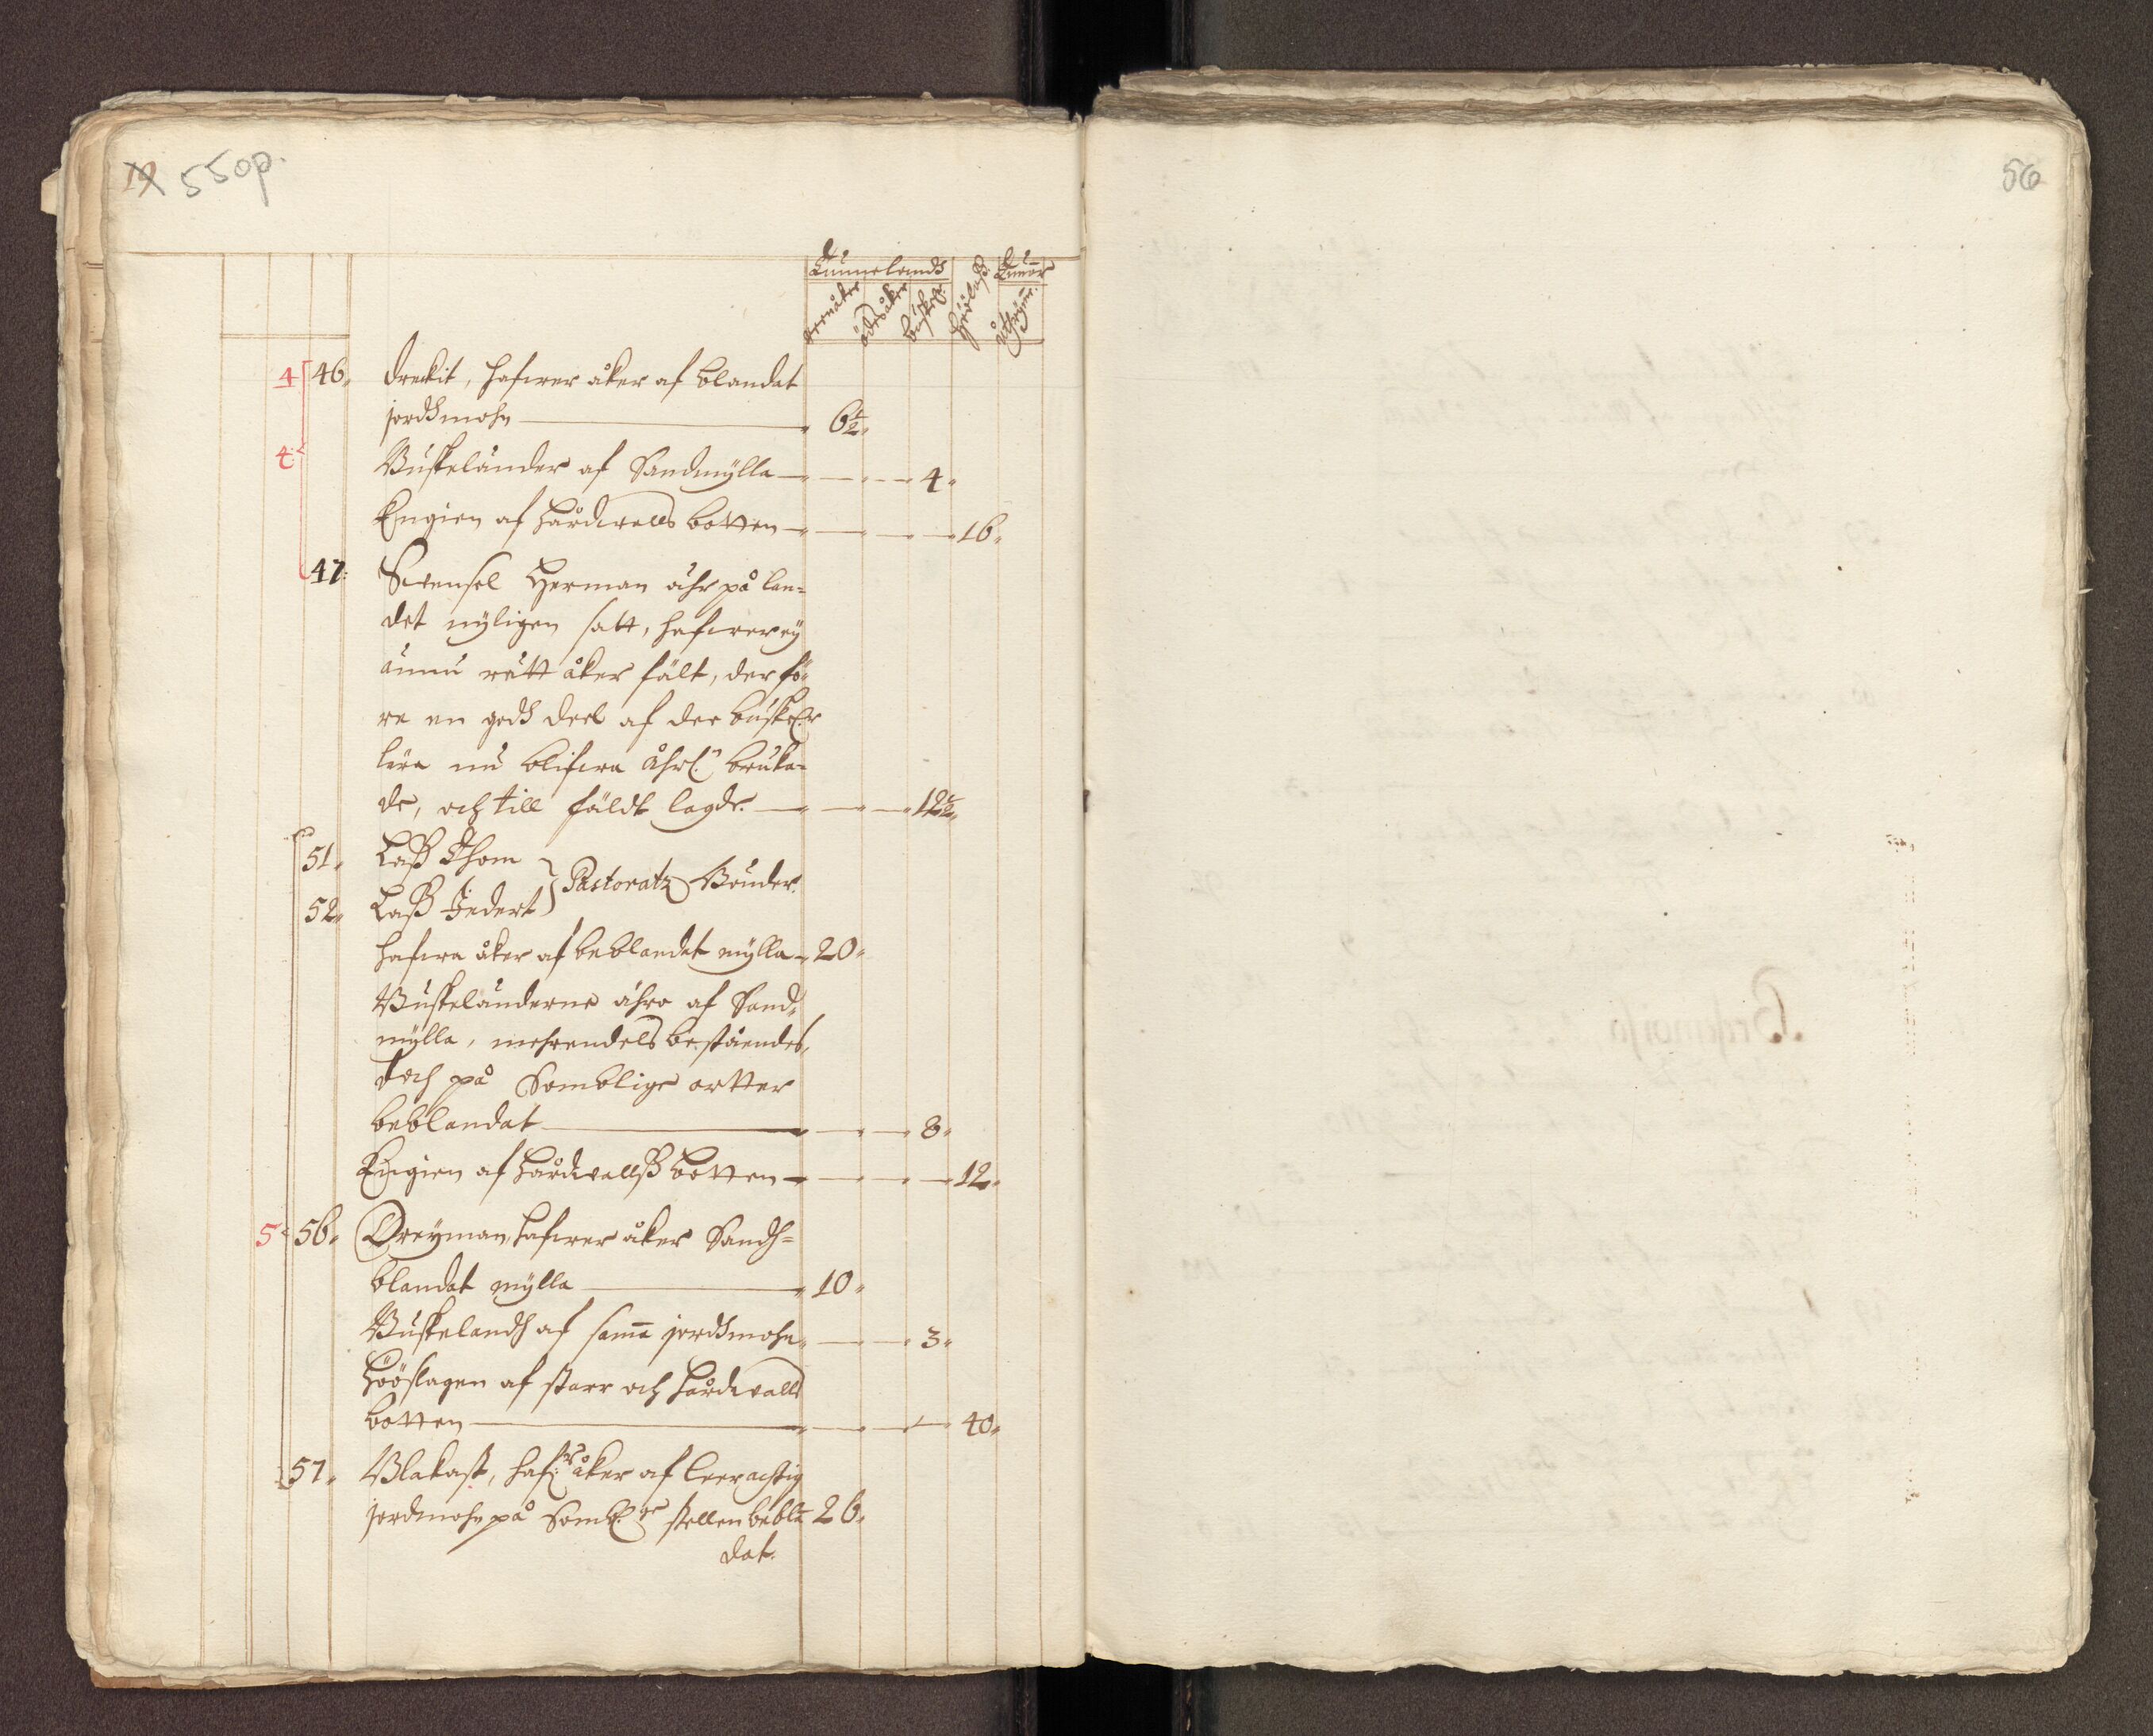 19 55 op.
56
Tunnelandh Tunnor
åker ödesåker buskar Höölaß uthrymn.
4 46. dreckit, hafwer åker af blandat
jordhmohn 6½.
4. Buskeländer af Sandmylla 4.
Engien af hårdwalls botten 16.
47. Swensel Herman ähr på lan-
det nyligen satt, hafwer ey
ännu rätt åker fält, der fö-
re en godh deel af dee buskel:r
lära nu blifwa åhrl:n bruka-
de, och till fäldt lagde. 12½.
51. Laß Thom
52. Laß Jedert } Pastoratz Bönder.
hafwa åker af beblandat mylla 20.
Buskeländerne ähro af Sand-
mylla, mehrendels bestående,
doch på Somblige orter
beblandat 8.
Engien af hårdwallß botten 12.
5 56. Dreyman, hafwer åker Sandh-
blandat mylla 10.
Buskelandh af sam̄a jordhmohn 3.
Hööslagen af starr och hårdwalls
botten 40.
57. Blakast, haf:r åker af leerachtig
jordmohn på Somb:ge stellen bebla- 26.
dat.